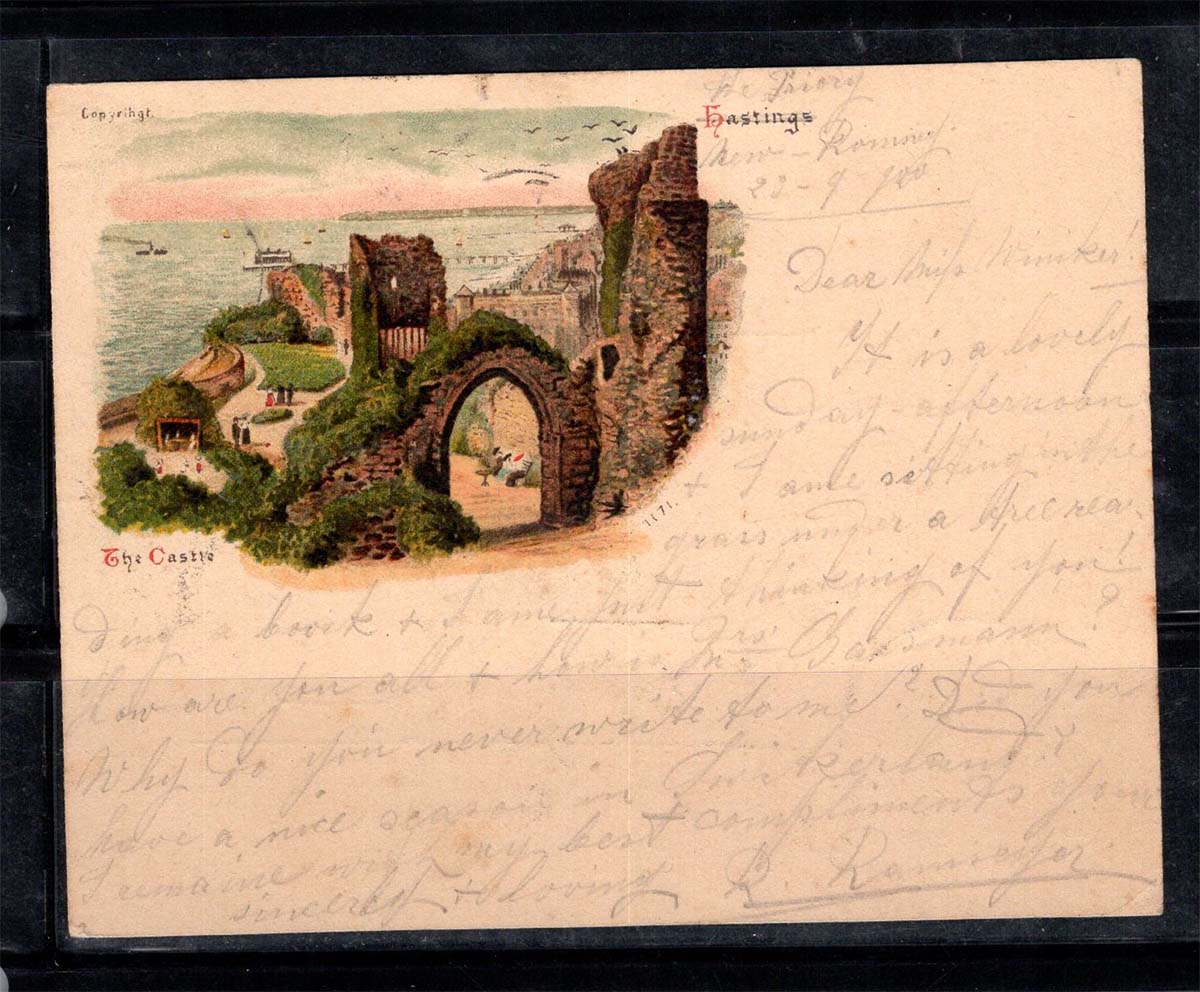 Copyrihgt.
Hastings
The Priory
New-Romney.
23-9 900
Dear Miss Winiker!
It is a lovely
sunday-afternoon
+ I ame sitting in the
grass under a Tree rea-
ding a boock + I ame just thinking of you!
How are you all + how is Mrs Gassmann?
Why do you never write to me? Did you
have a nice season in Switzerland?
I remaine with my best compliments your
sincerely + loving R. Ramseyer.
The Castle
1171.